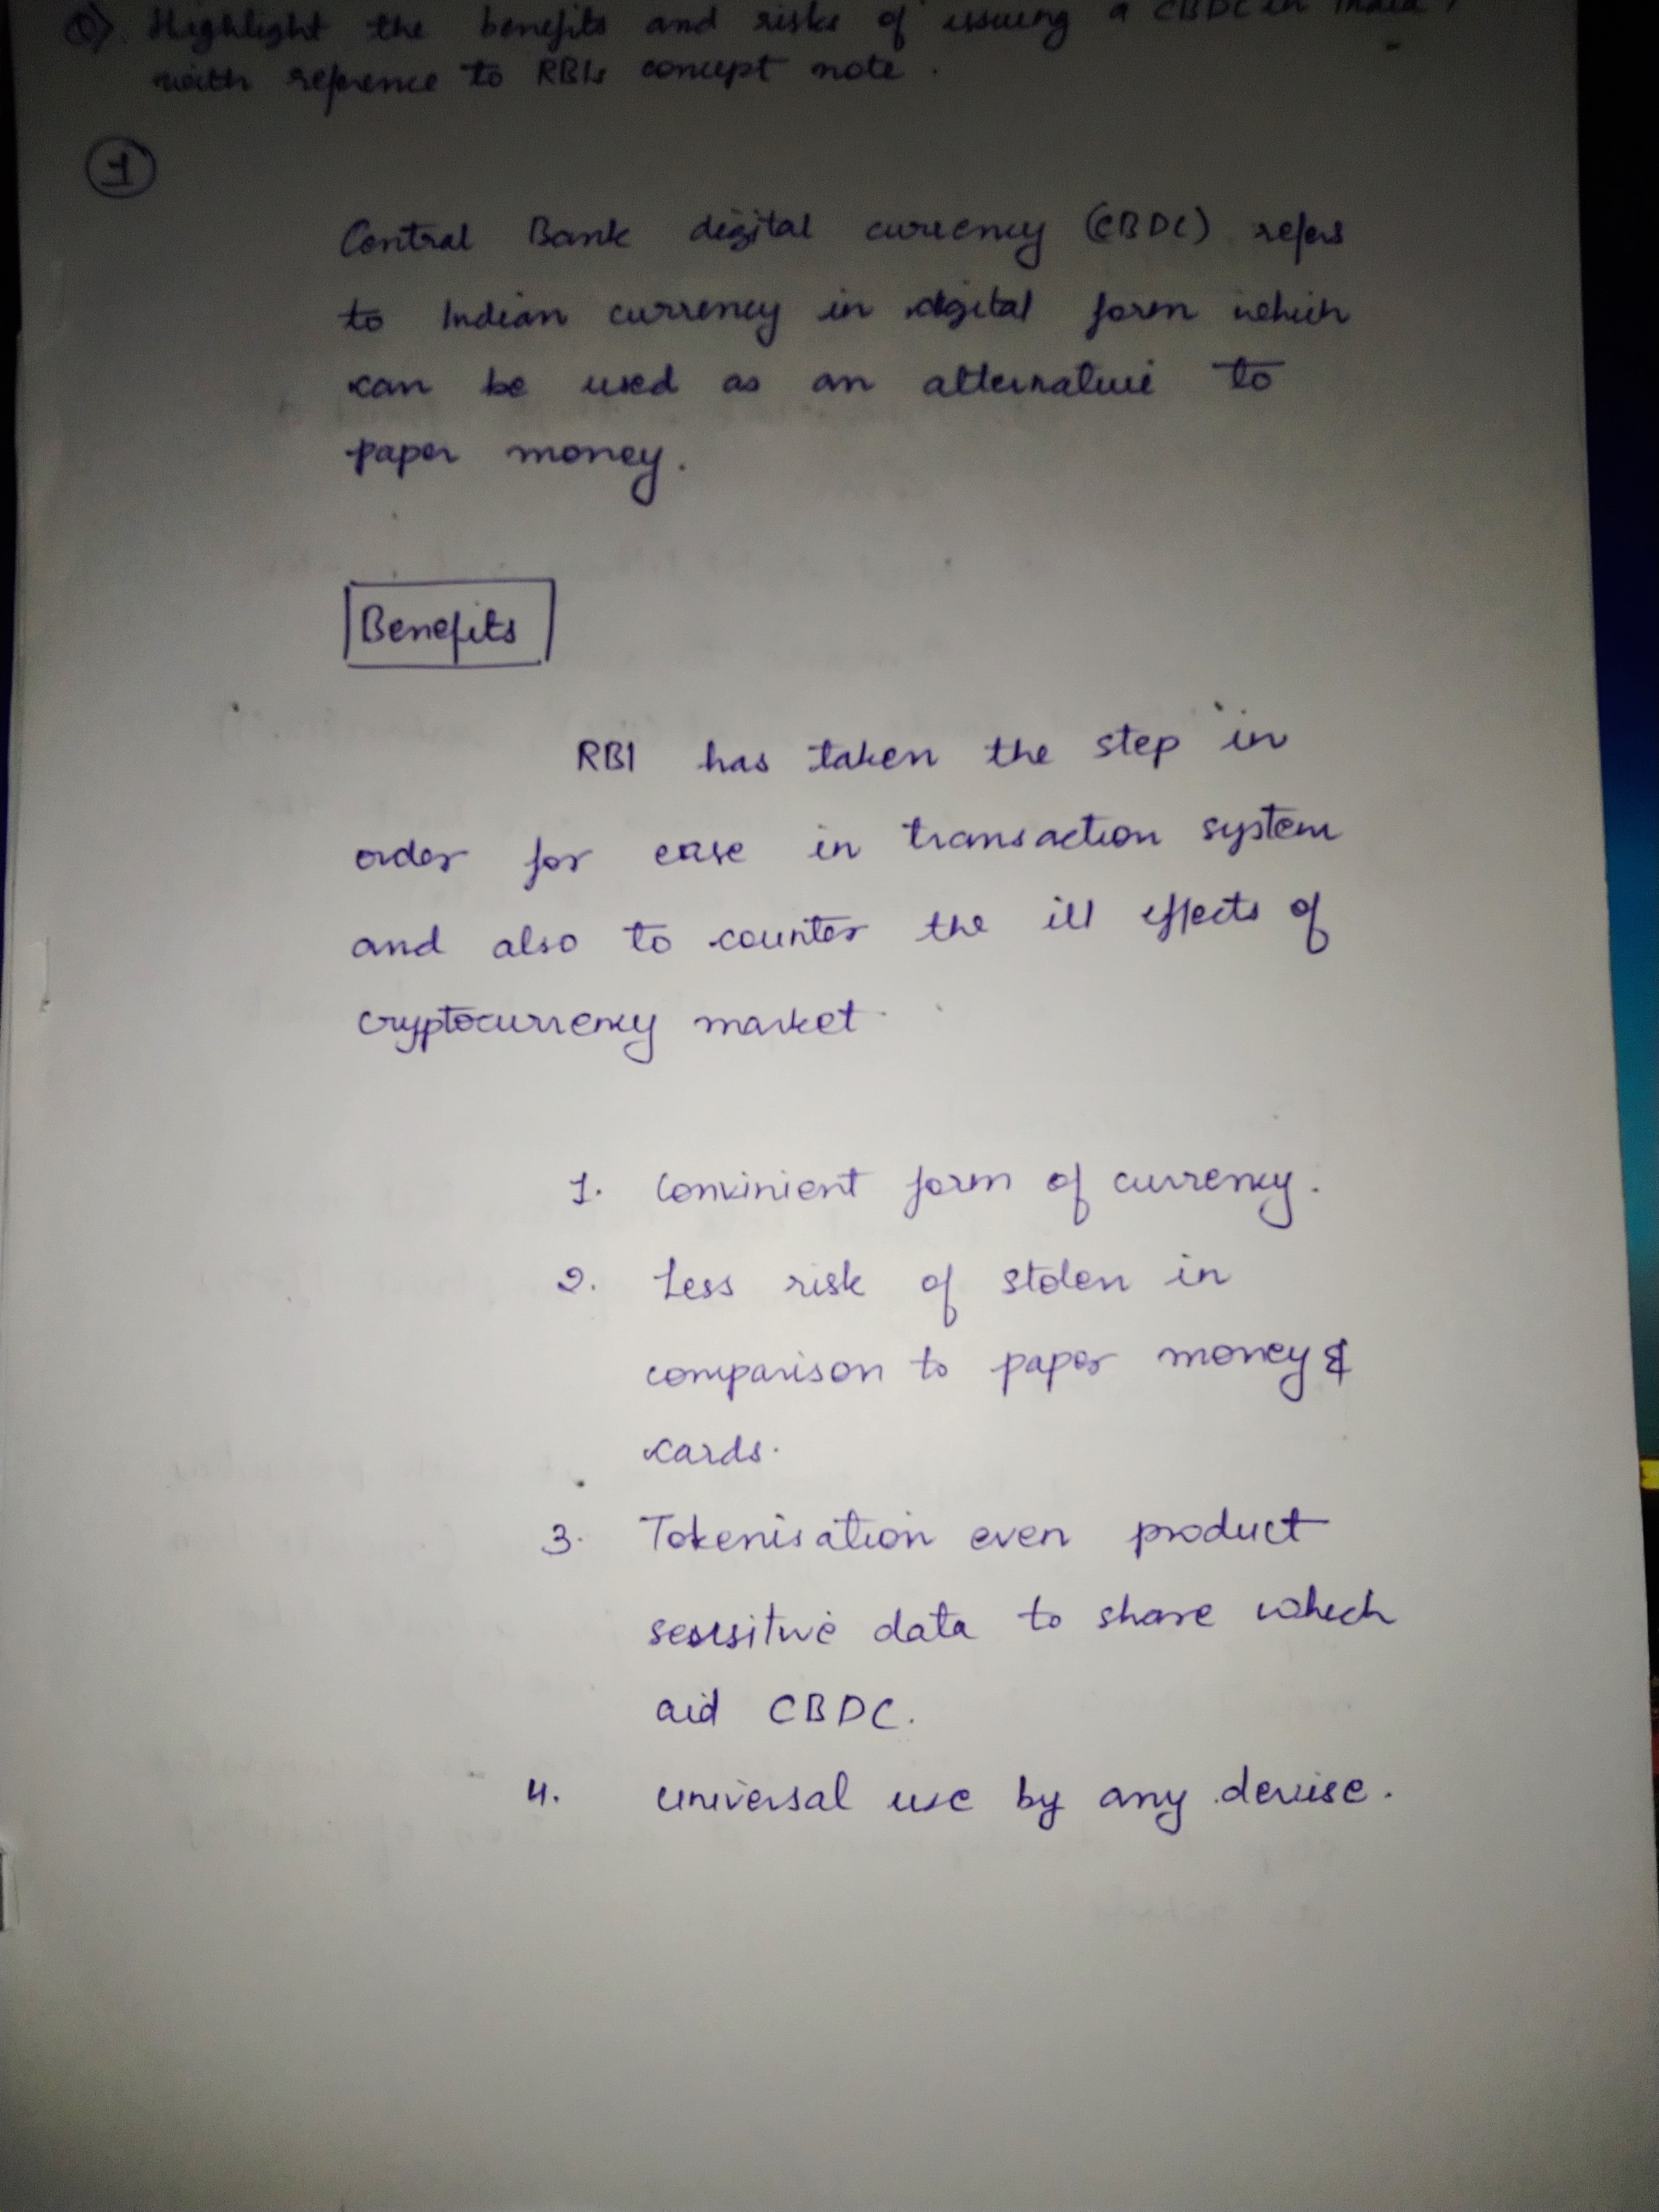 Q). Highlight the benefits and risks of issuing a CBDC in India,
with reference to RBIs concept note.
1
Central Bank digital currency (CBDC) refers
to Indian currency in digital form which
can be used as an alternative to
paper money.
Benefits
RBI has taken the step in
order for ease in transaction system
and also to counter the ill effects of
cryptocurrency market.
1. Convinient form of currency.
2. Less risk of stolen in
comparison to paper money &
cards.
3. Tokenisation even product
sensitive data to share which
aid CBDC.
4. universal use by any devise.